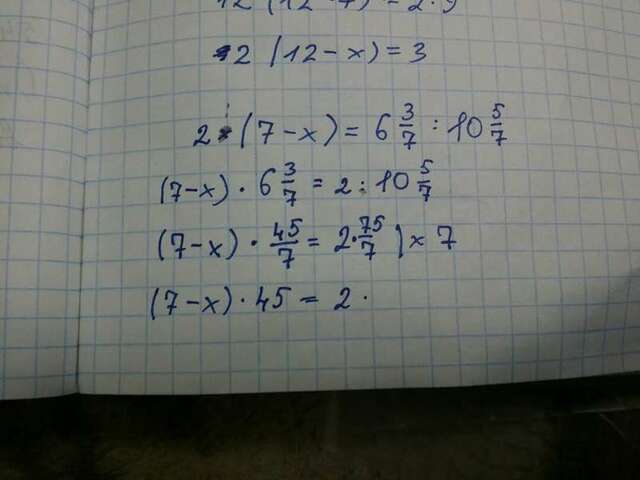 2 (12 - x) = 3
2 : (7 - x) = 6 3/7 : 10 5/7
(7 - x) · 6 3/7 = 2 : 10 5/7
(7 - x) · 45/7 = 2 · 75/7 | × 7
(7 - x) · 45 = 2 ·